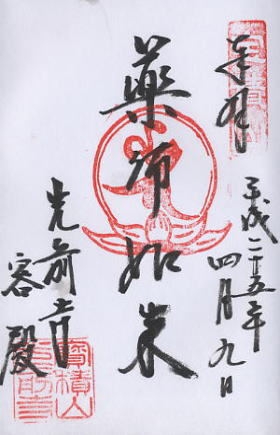 奉拝
平成二十五年
四月九日
藥師如来
光前寺
客殿
寶積山
光前寺